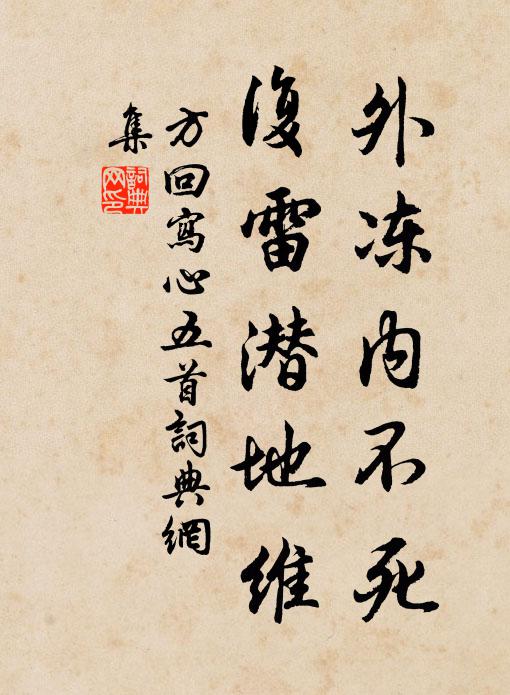 外冻内不死
復雷潜地维
方回寫心五首詞典網
集
詞典網印